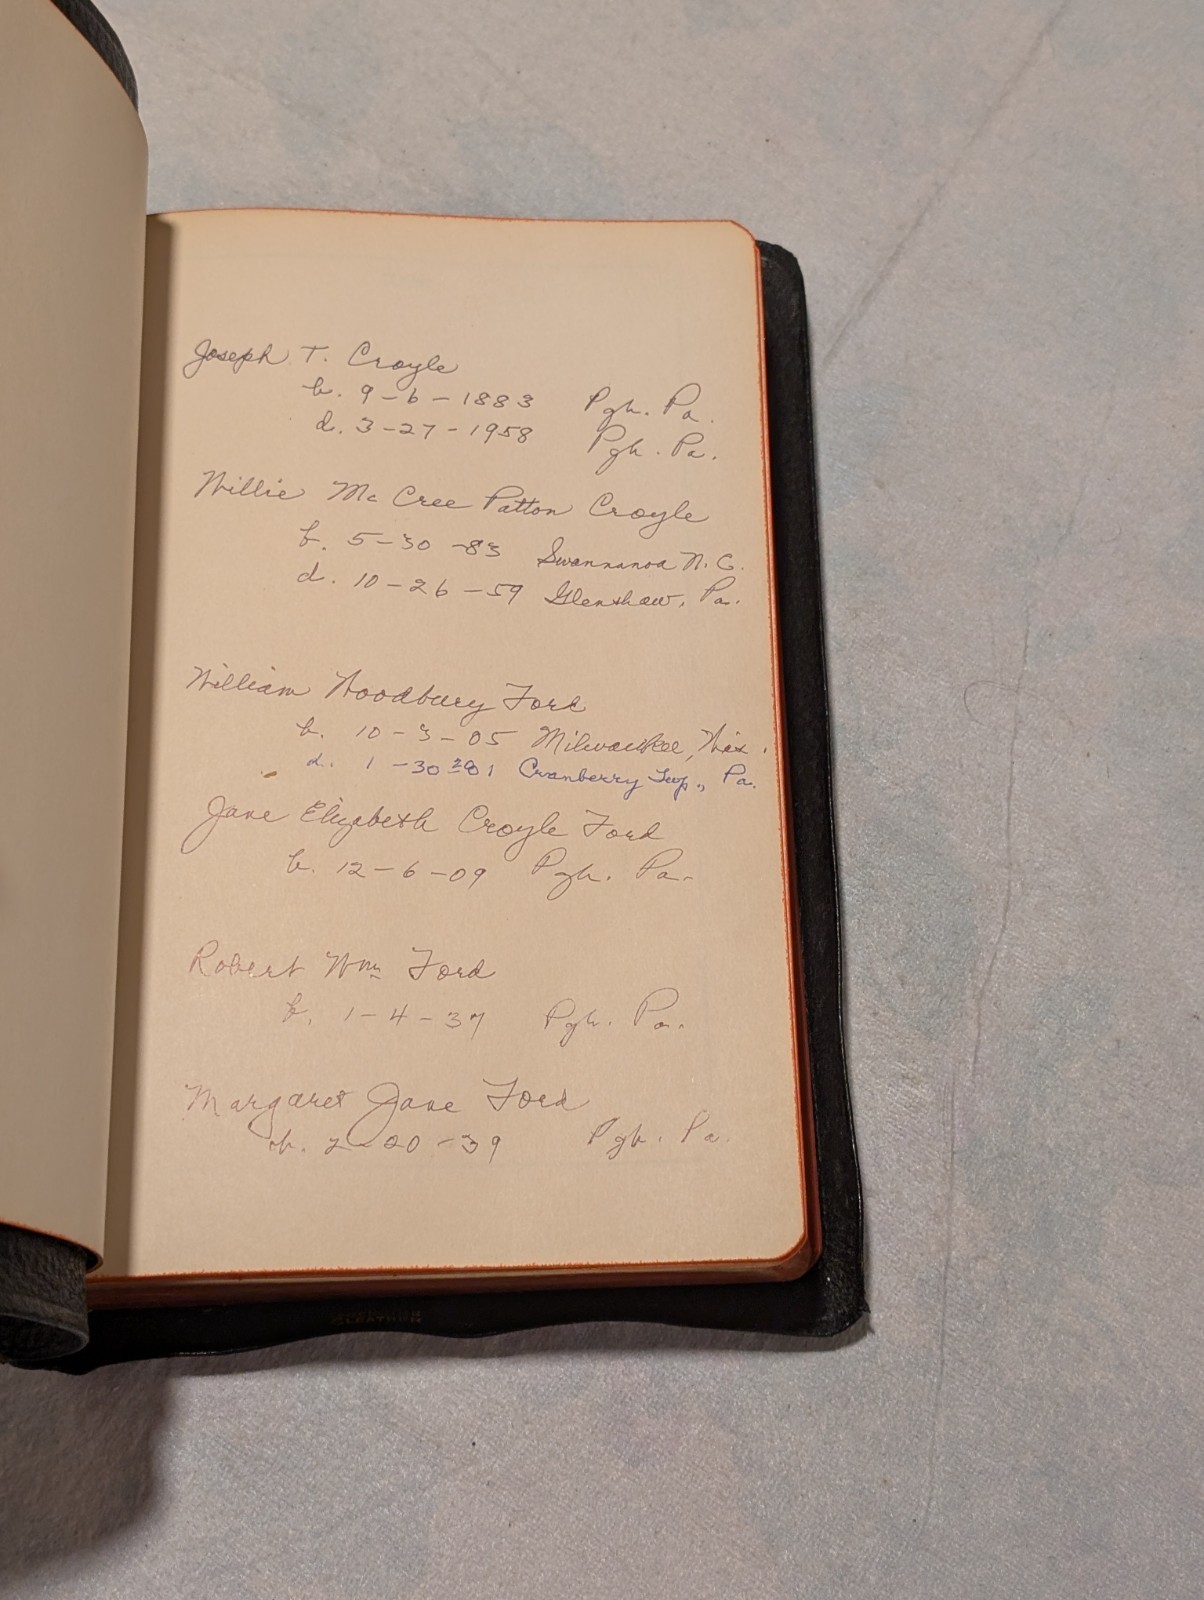 Joseph T. Croyle
b. 9-6-1883 Pgh. Pa.
d. 3-27-1958 Pgh. Pa.
Willie Mc Cree Patton Croyle
b. 5-30-83 Swannanoa N.C.
d. 10-26-59 Glenshaw, Pa.
William Woodbury Ford
b. 10-3-05 Milwaukee, Wis.
d. 1-30-2001 Cranberry Twp., Pa.
Jane Elizabeth Croyle Ford
b. 12-6-09 Pgh. Pa.
Robert Wm Ford
b. 1-4-37 Pgh. Pa.
Margaret Jane Ford
b. 2-20-39 Pgh. Pa.